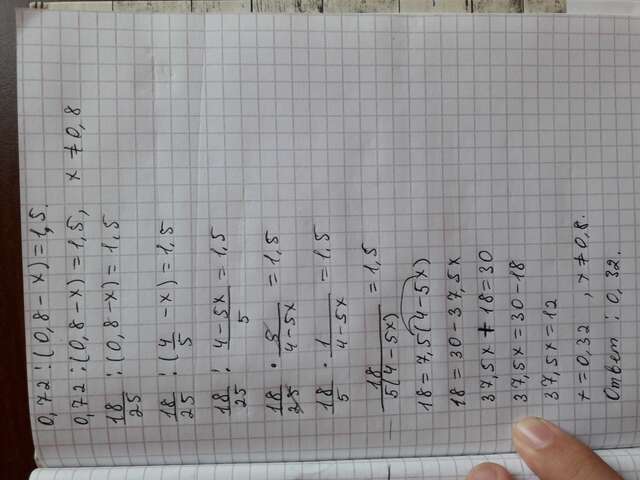 0,72 : (0,8 - x) = 1,5.
0,72 : (0,8 - x) = 1,5, x ≠ 0,8
18/25 : (0,8 - x) = 1,5
18/25 : (4/5 - x) = 1,5
18/25 : (4-5x)/5 = 1,5
18/25 · 5/(4-5x) = 1,5
18/5 · 1/(4-5x) = 1,5
18/(5(4-5x)) = 1,5
18 = 7,5(4-5x)
18 = 30 - 37,5x
37,5x + 18 = 30
37,5x = 30 - 18
37,5x = 12
x = 0,32 , x ≠ 0,8.
Ответ: 0,32.